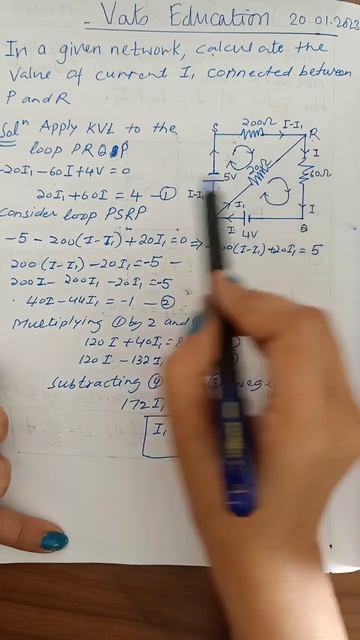 - Vats Education 20.01.2023
In a given network, calculate the
value of current I₁ connected between
P and R
Solⁿ Apply KVL to the
loop PRQP
-20I₁-60I+4V=0
20I₁+60I = 4 -①
consider loop PSRP
-5-200(I-I₁)+20I₁=0 ⇒ -200(I-I₁)+20I₁=5
200(I-I₁)-20I₁=-5-
200I-200I₁-20I₁=-5
40I-44I₁=-1 -②
Multiplying ① by 2 and
120I+40I₁=8
120I-132I₁
Subtracting ④
172I₁
I₁
S 200Ω I-I₁ R
I
5V 20Ω 60Ω
I-I₁
I₁ I
I 4V Q